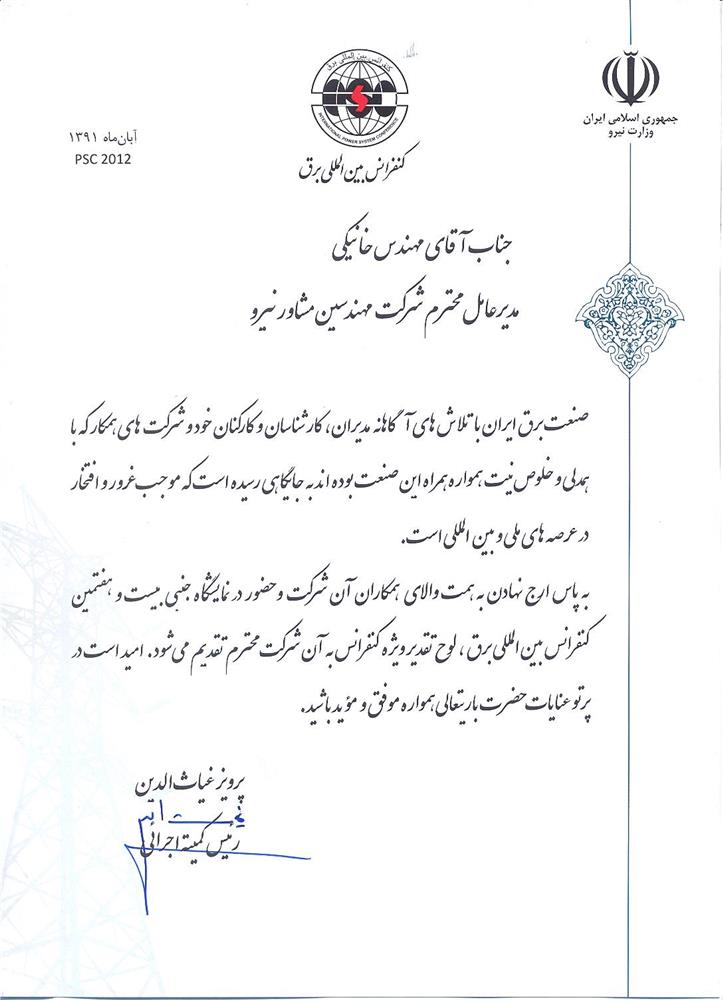 جمهوری اسلامی ایران
وزارت نیرو
کنفرانس بین المللی برق
INTERNATIONAL POWER SYSTEM CONFERENCE
کنفرانس بین المللی برق
آبان‌ماه ۱۳۹۱
PSC 2012
جناب آقای مهندس خانیکی
مدیرعامل محترم شرکت مهندسین مشاور نیرو
صنعت برق ایران با تلاش های آگاهانه مدیران، کارشناسان و کارکنان خود و شرکت های همکار که با
همدلی و خلوص نیت همواره همراه این صنعت بوده اند به جایگاهی رسیده است که موجب غرور و افتخار
در عرصه های ملی و بین المللی است.
به پاس ارج نهادن به همت والای همکاران آن شرکت و حضور در نمایشگاه جنبی بیست و هفتمین
کنفرانس بین المللی برق، لوح تقدیر ویژه کنفرانس به آن شرکت محترم تقدیم می شود. امید است در
پرتو عنایات حضرت باریتعالی همواره موفق و مؤید باشید.
پرویز غیاث الدین
رئیس کمیته اجرائی